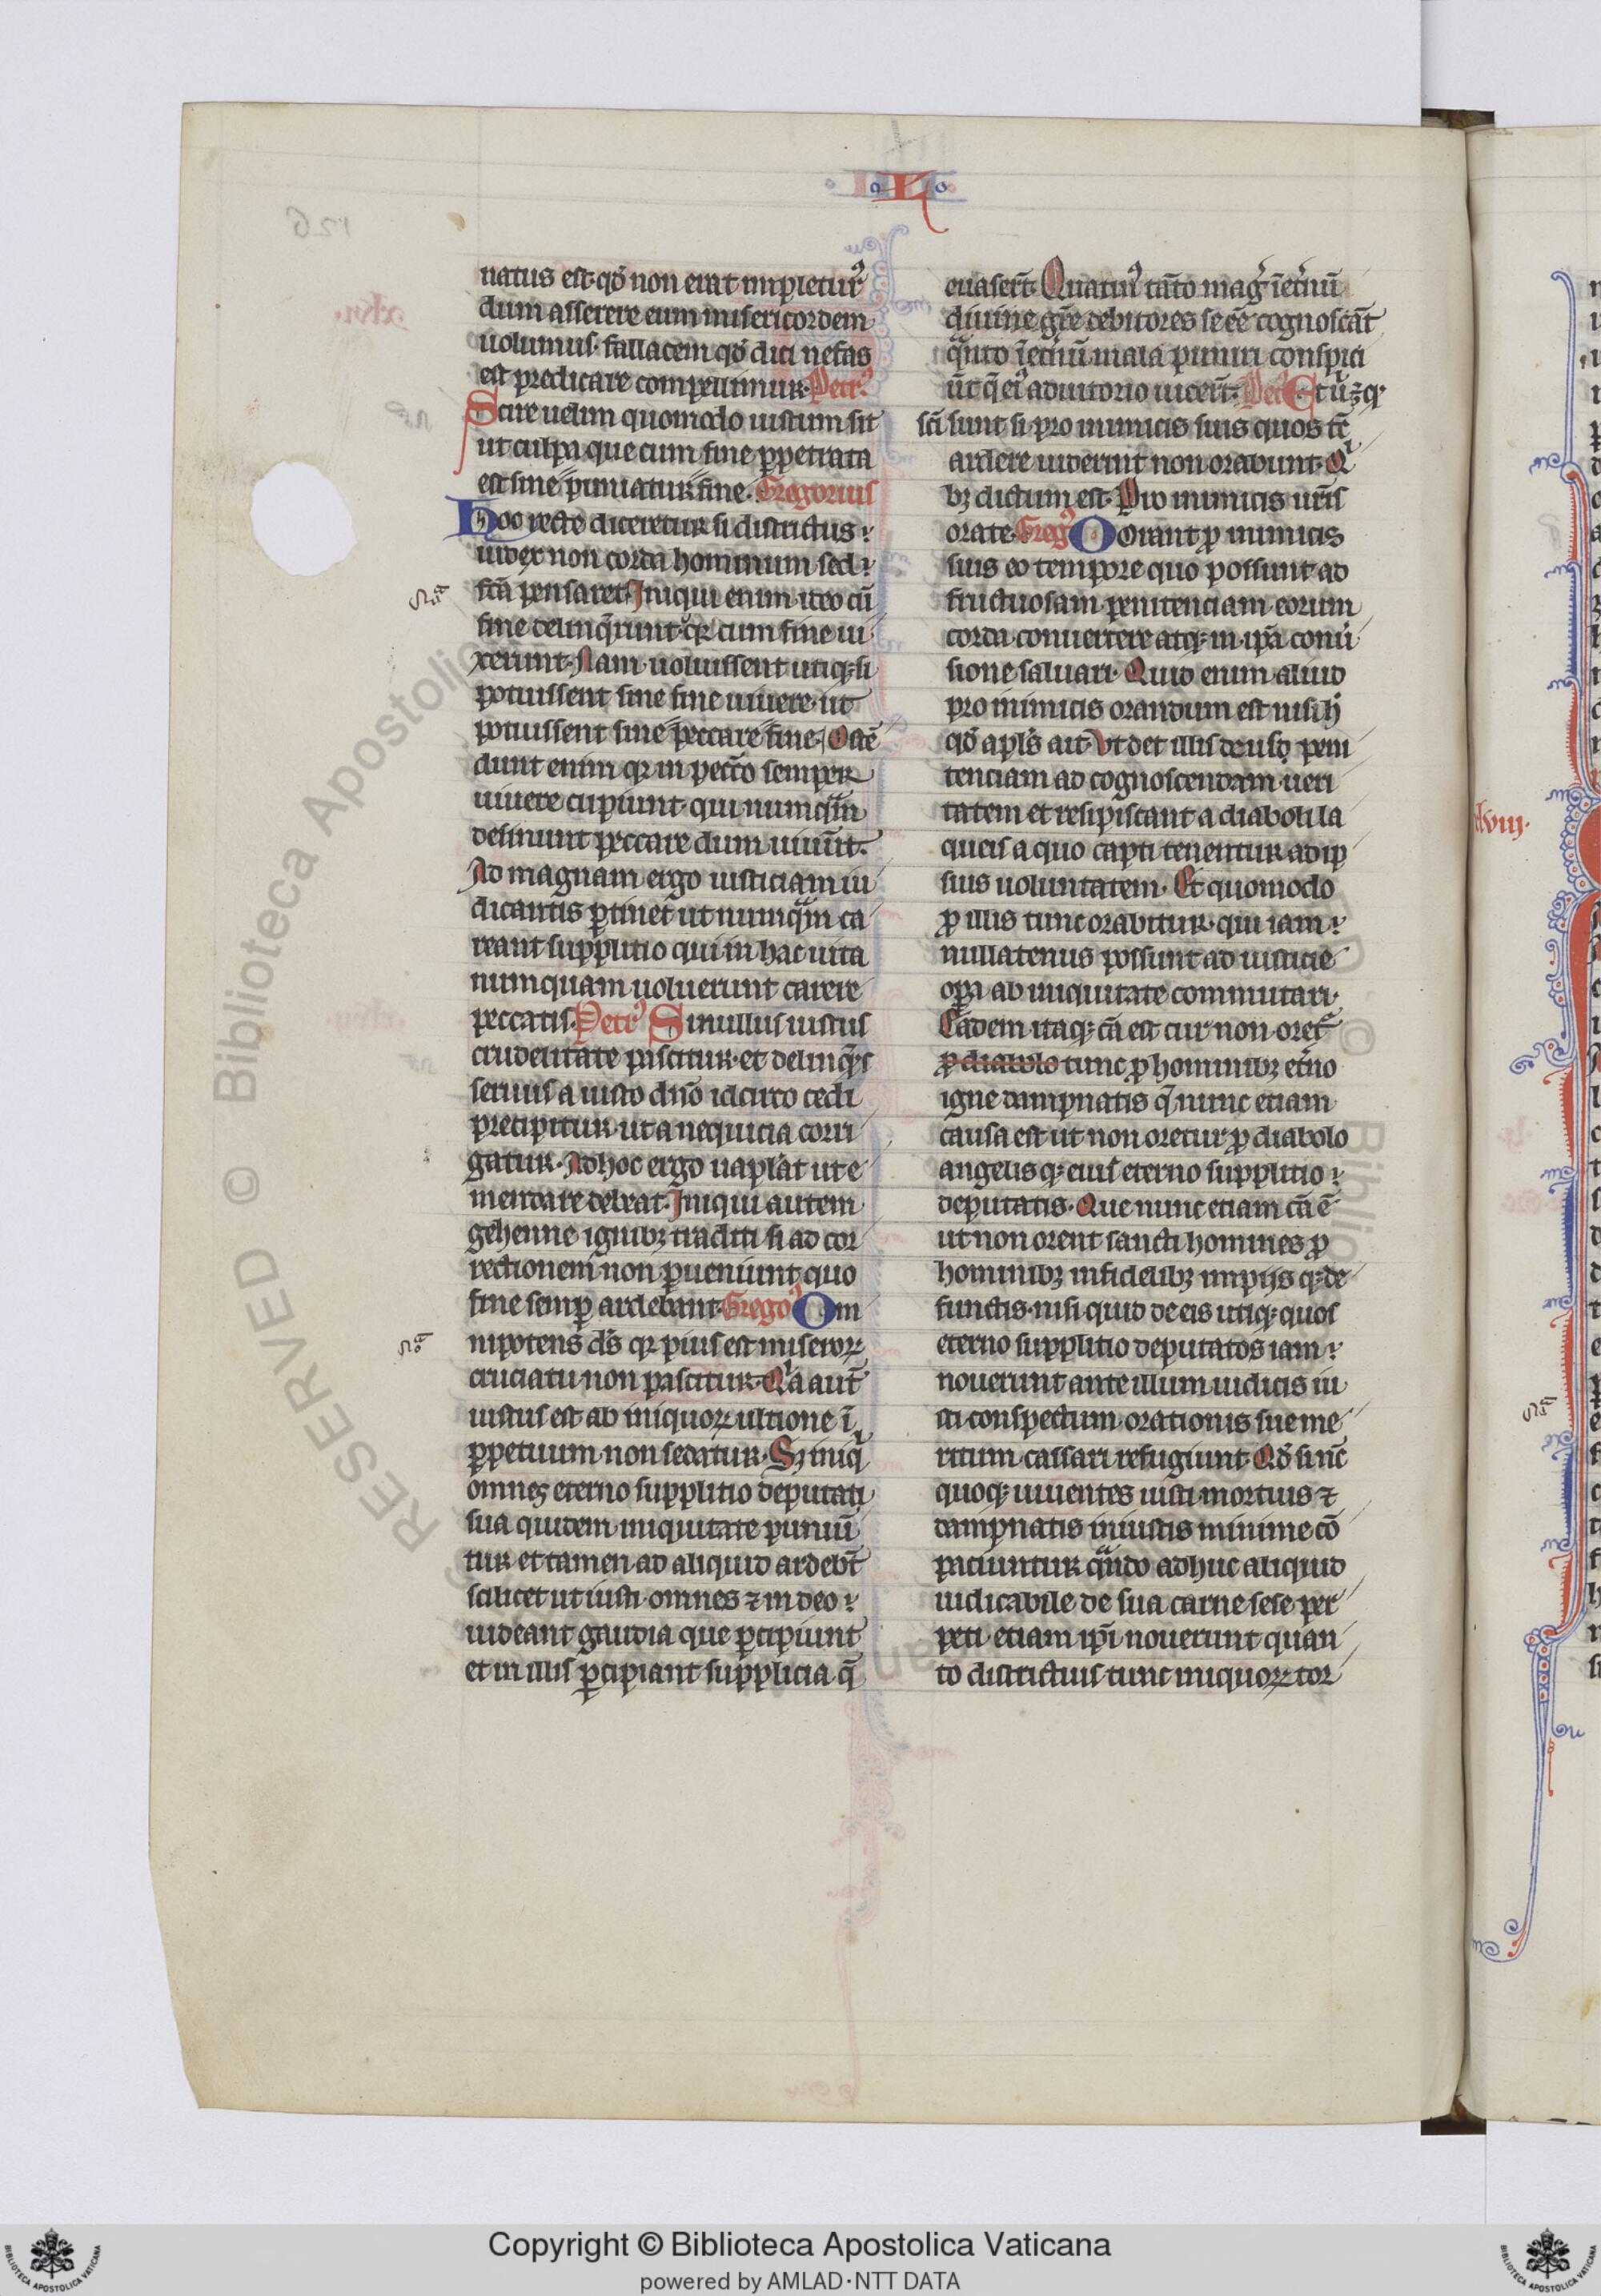 L
natus est. qđ non erat impletur̉
dum asserere eum misericordem
uolumus. fallacem qđ dici nefas
est predicare compellimur. Petr᾿
Scire uelim quomodo iustum sit
ut culpa que cum fine ꝑpetrata
est sine puniatur fine. Gregorius
Hoc recte diceretur si districtus
iudex non corda hominum sed
fc̄a pensaret. Iniqui enim ideo cū
fine delinq̄runt. qꝛ cum fine ui
xerunt. Nam uoluissent utiqꝫ si
potuissent sine fine uiuere. ut
potuissent sine peccare fine. Ostē
dunt enim qꝛ in pecc̄o semper
uiuere cupiunt. qui numqᵃm
desinunt peccare dum uiuūt.
Ad magnam ergo iusticiam iu
dicantis ꝑtinet ut numqᵃm ca
reant supplitio qui in hac uita
numquam uoluerunt carere
peccatis. Petr᾿ Si nullus iustus
crudelitate pascitur. et delinq̄s
seruus a iusto dn̄o idcirco cedi
precipitur. ut a nequicia corri
gatur. Ad hoc ergo uaplat ut e
mendare debeat. Iniqui autem
gehenne ignibꝫ traditi si ad cor
rectionem non ꝑueniunt. quo
fine semꝑ ardebunt. Grego᾿ Om
nipotens ds̄ qꝛ pius est miseroꝝ
cruciatu non pascitur. Qᵃa aut̄
iustus est ab iniquoꝝ ultione ī
ꝑpetuum non sedatur. Sꝫ iniqⁱ
omnes eterno supplitio deputati
sua quidem iniquitate puniū
tur. et tamen ad aliquid ardebt̄
scilicet ut iusti omnes ⁊ in deo
uideant gaudia que ꝑcipiunt
et in illis ꝑcipiant supplicia q̄
euaser̄t. Quatin᾿ tāto mag᾿ ī et̉nū
diuine gr̄e debitores se eē cognoscāt
qᵃnto ī et̉nū mala puniri conspici
ūt q̄ ei᾿ adiutorio uicer̄t. Pet᾿ Et ubꝫ q᾿
sc̄i sunt si pro inimicis suis quos tc̄
ardere uiderint non orabunt. Qⁱ
bꝫ dictum est. Pro inimicis ur̄is
orate. Greg᾿ Orant ꝓ inimicis
suis eo tempore quo possunt ad
fructuosam penitenciam eorum
corda conuertere atqꝫ in ip̄a conu̇
sione saluari. Quid enim aliud
pro inimicis orandum est nisi h̄
qđ apls̄ ait. Ut det illis deus pem
tenciam ad cognoscendam ueri
tatem et resipiscant a diaboli la
queis a quo capti tenentur ad ip
sius uoluntatem. Et quomodo
ꝓ illis tunc orabitur. qui iam
nullatenus possunt ad iusticie
oꝑa ab iniquitate commutari.
Eadem itaqꝫ cā est cur non oret᾿
ꝓ diabolo tunc ꝓ hominibꝫ et̉no
igne dampnatis q̄ nunc etiam
causa est ut non oretur ꝓ diabolo
angelis qꝫ eius eterno supplitio
deputatis. Que nunc etiam cā ē
ut non orent sancti homines ꝓ
hominibꝫ infidelibꝫ impijs qꝫ de
functis. nisi quid de eis utiqꝫ quos
eterno supplitio deputatos iam
nouerunt ante illum iudicis iu
sti conspectum orationis sue me
ritum cassari refugiunt. Qđ si nc̄
quoqꝫ uiuentes iusti mortuis ⁊
dampnatis iniustis minime cō
paciuntur qᵃndo adhuc aliquid
iudicabile de sua carne sese per
peti etiam ip̄i nouerunt quan
to districtius tunc iniquoꝝ tor